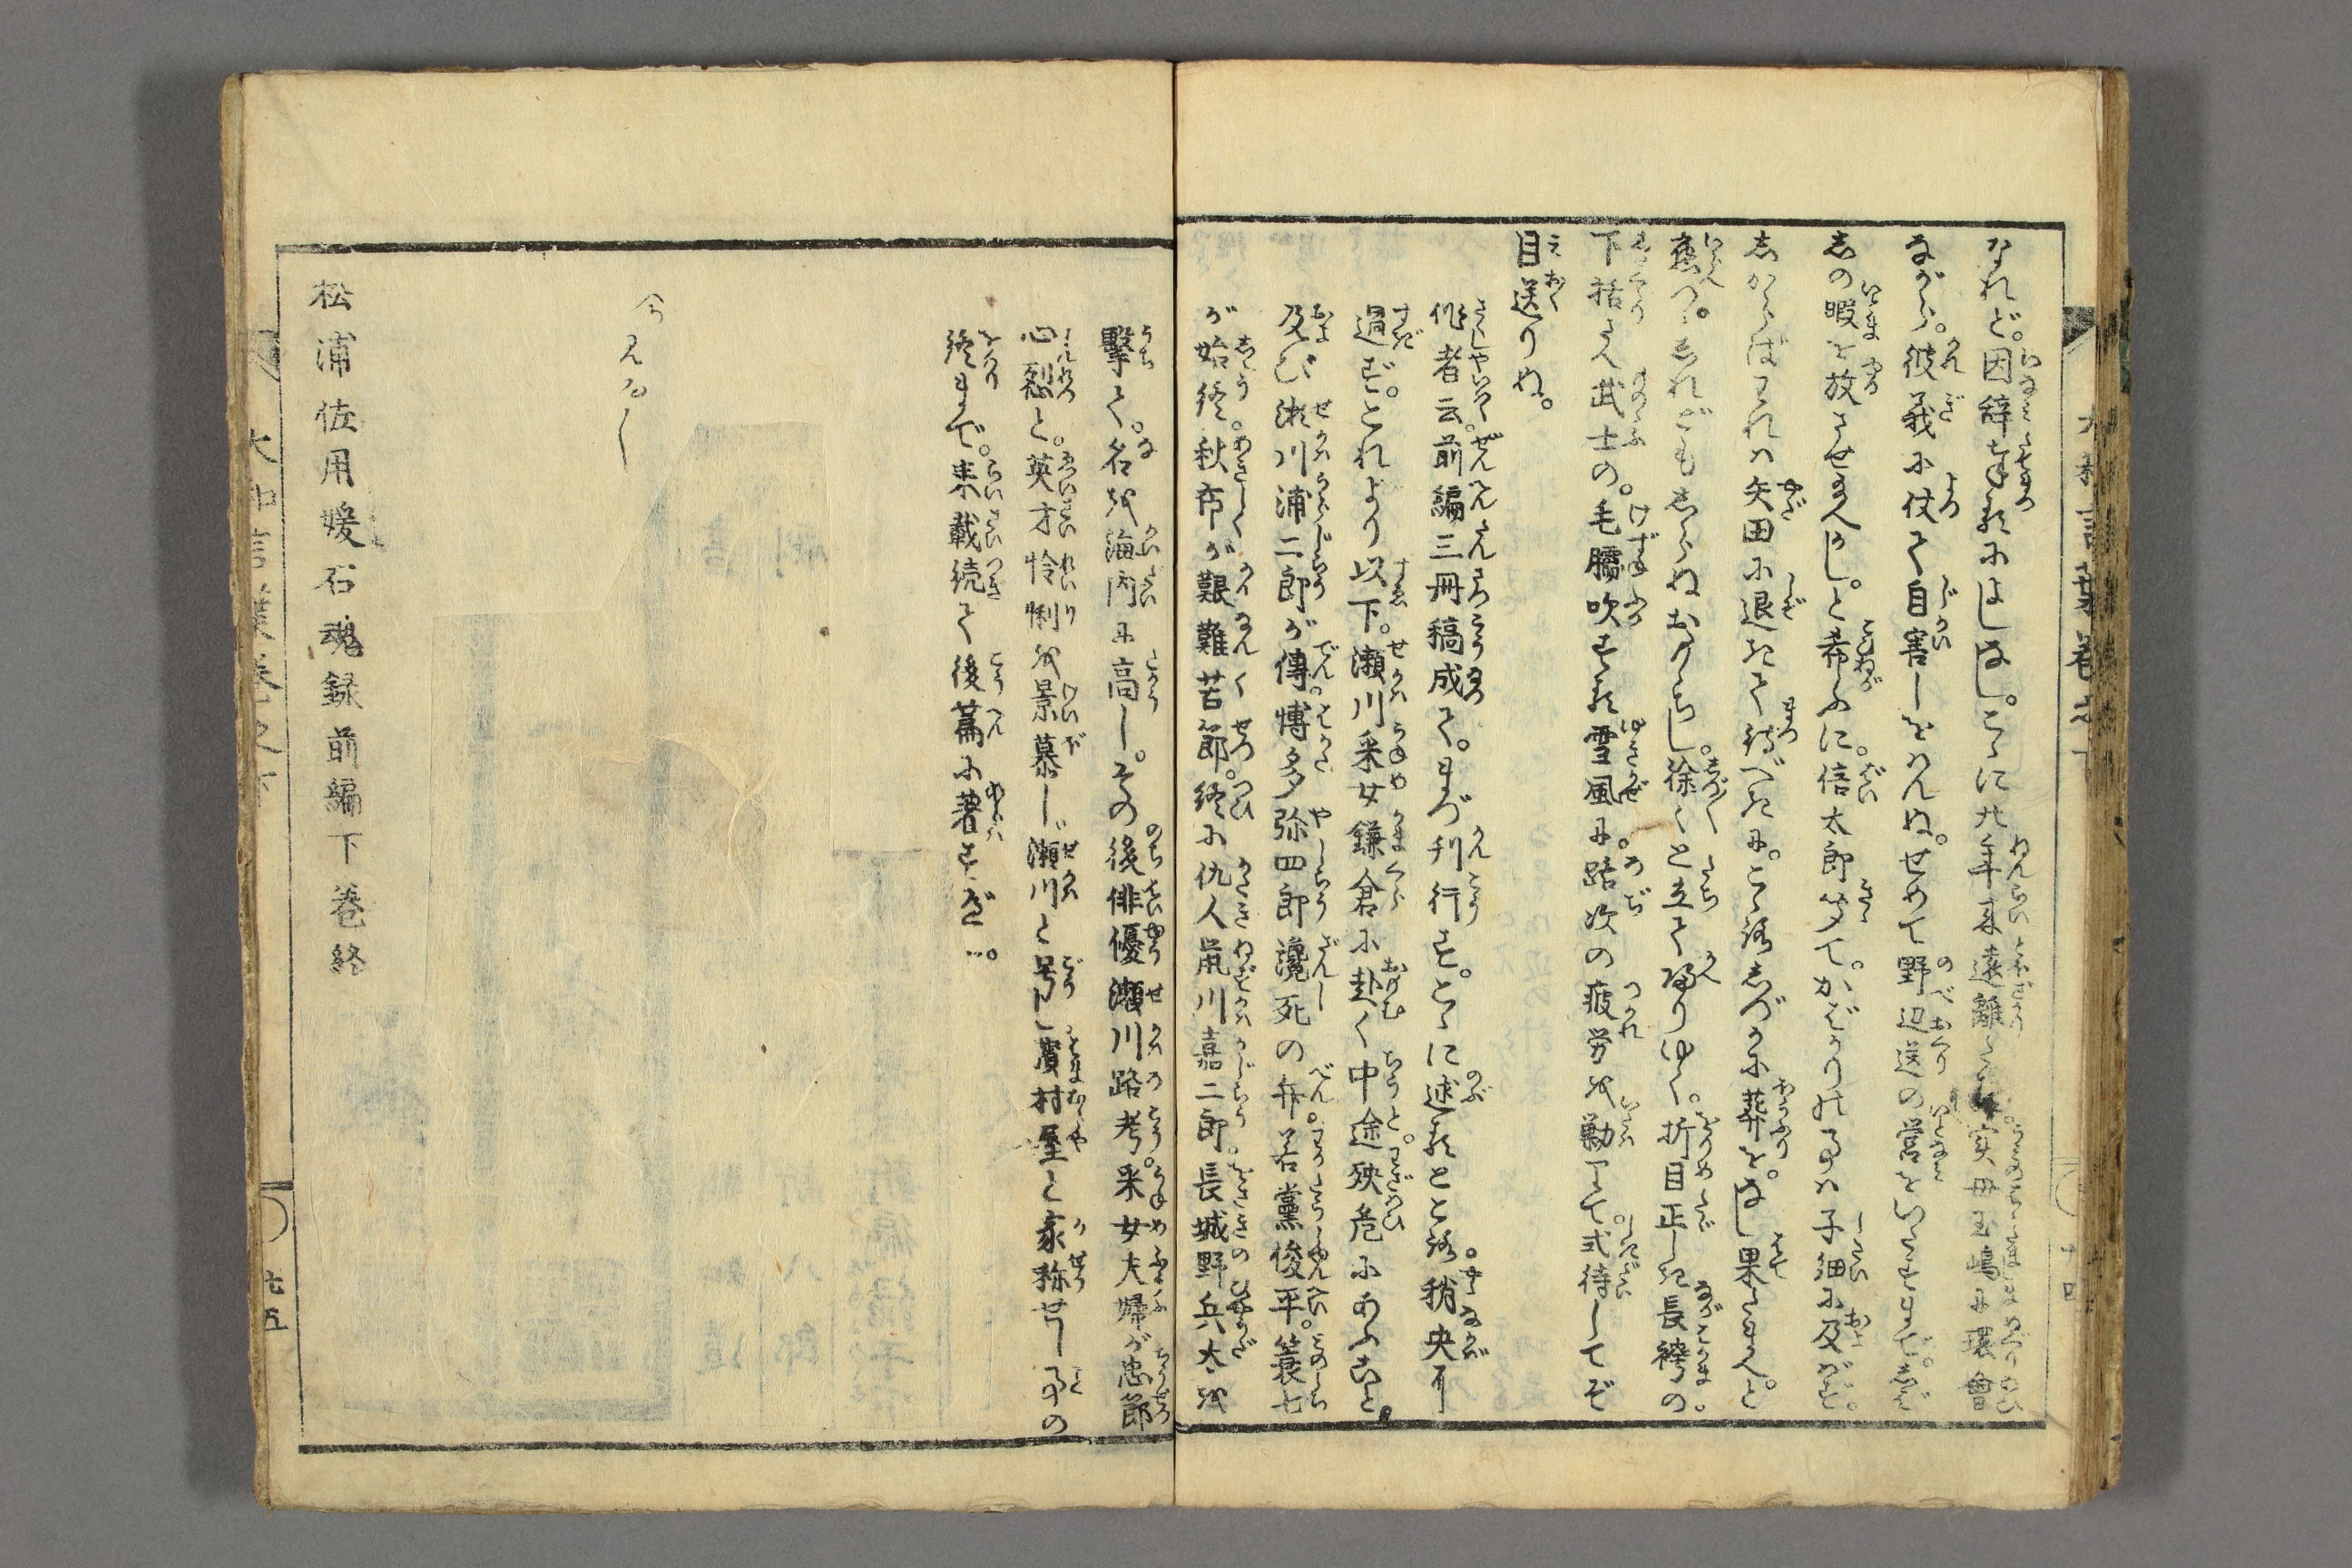 なれど。因辞奉るによしなし。こゝに北年来遠離たる。実母玉嶋に環會
ながら。彼義に仗て自害しをはんぬ。せめて野辺送の営をいたすまで。しば
しの暇を放させ給へかし。と希ふに。倍太郎笑て。かばかりの事は子細に及ばず。
しからばわれは矢田に退きて待べきに。こゝろしづかに葬を。なし果たまへと
應つ。しれどもしらぬおももちし。徐々と立て帰りゆく。折目正しき長袴の。
下括さへ武士の。毛臑吹する雪風に。路次の疲労を勦りて弐待してぞ
目送りぬ。
作者云。前編三冊稿成て。まづ刊行す。こゝに述るところ。稍央に
過ず。これより以下。瀬川采女鎌倉に赴く中途殃危にあふこと。
及び瀬川浦二郎が傳。博多弥四郎讒死の弁。若黨俊平。簑七
が始終。秋布が艱難苦節。終に仇人鼠川嘉二郎。長城野兵太を
撃て。名を海内に高し。その後俳優瀬川路考。采女夫婦が忠節
心烈と。英才怜悧を景慕し。瀬川と号し。濱村屋と家称せし事の
終まで。来載続て後篇に著すべし。
松浦佐用媛石魂録前編下巻終
七五